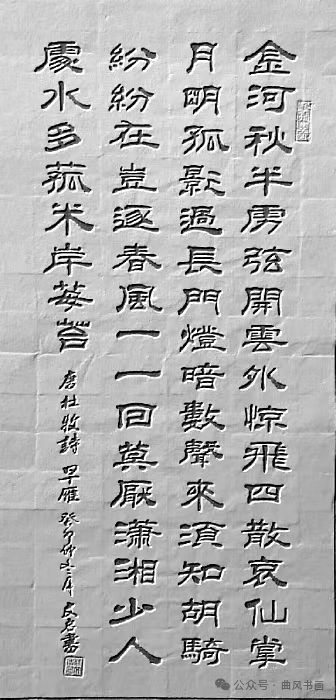 金河秋半虜弦開雲外惊飛四散哀仙掌
月明孤影過長門燈暗數聲來須知胡騎
紛紛在豈逐春風一一回莫厭瀟湘少人
處水多菰米岸莓苔
唐杜牧詩 早雁 癸卯仲冬 書
公众号·曲风书画